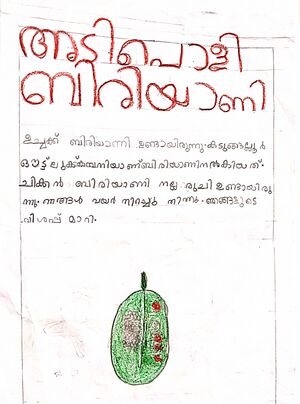 അടിപൊളി
ബിരിയാണി
ഉച്ചക്ക് ബിരിയാന്നി ഉണ്ടായിരുന്നു.കടുങ്ങല്ലൂർ
ബിരിയാണിനൽകിയത്.
ചിക്കൻ ബിരിയാണി നല്ല രുചി ഉണ്ടായിരു
ന്നു. ഞങ്ങൾ വയർ നിറച്ചും തിന്നു. ഞങ്ങളുടെ
വിശപ്പ് മാറി.